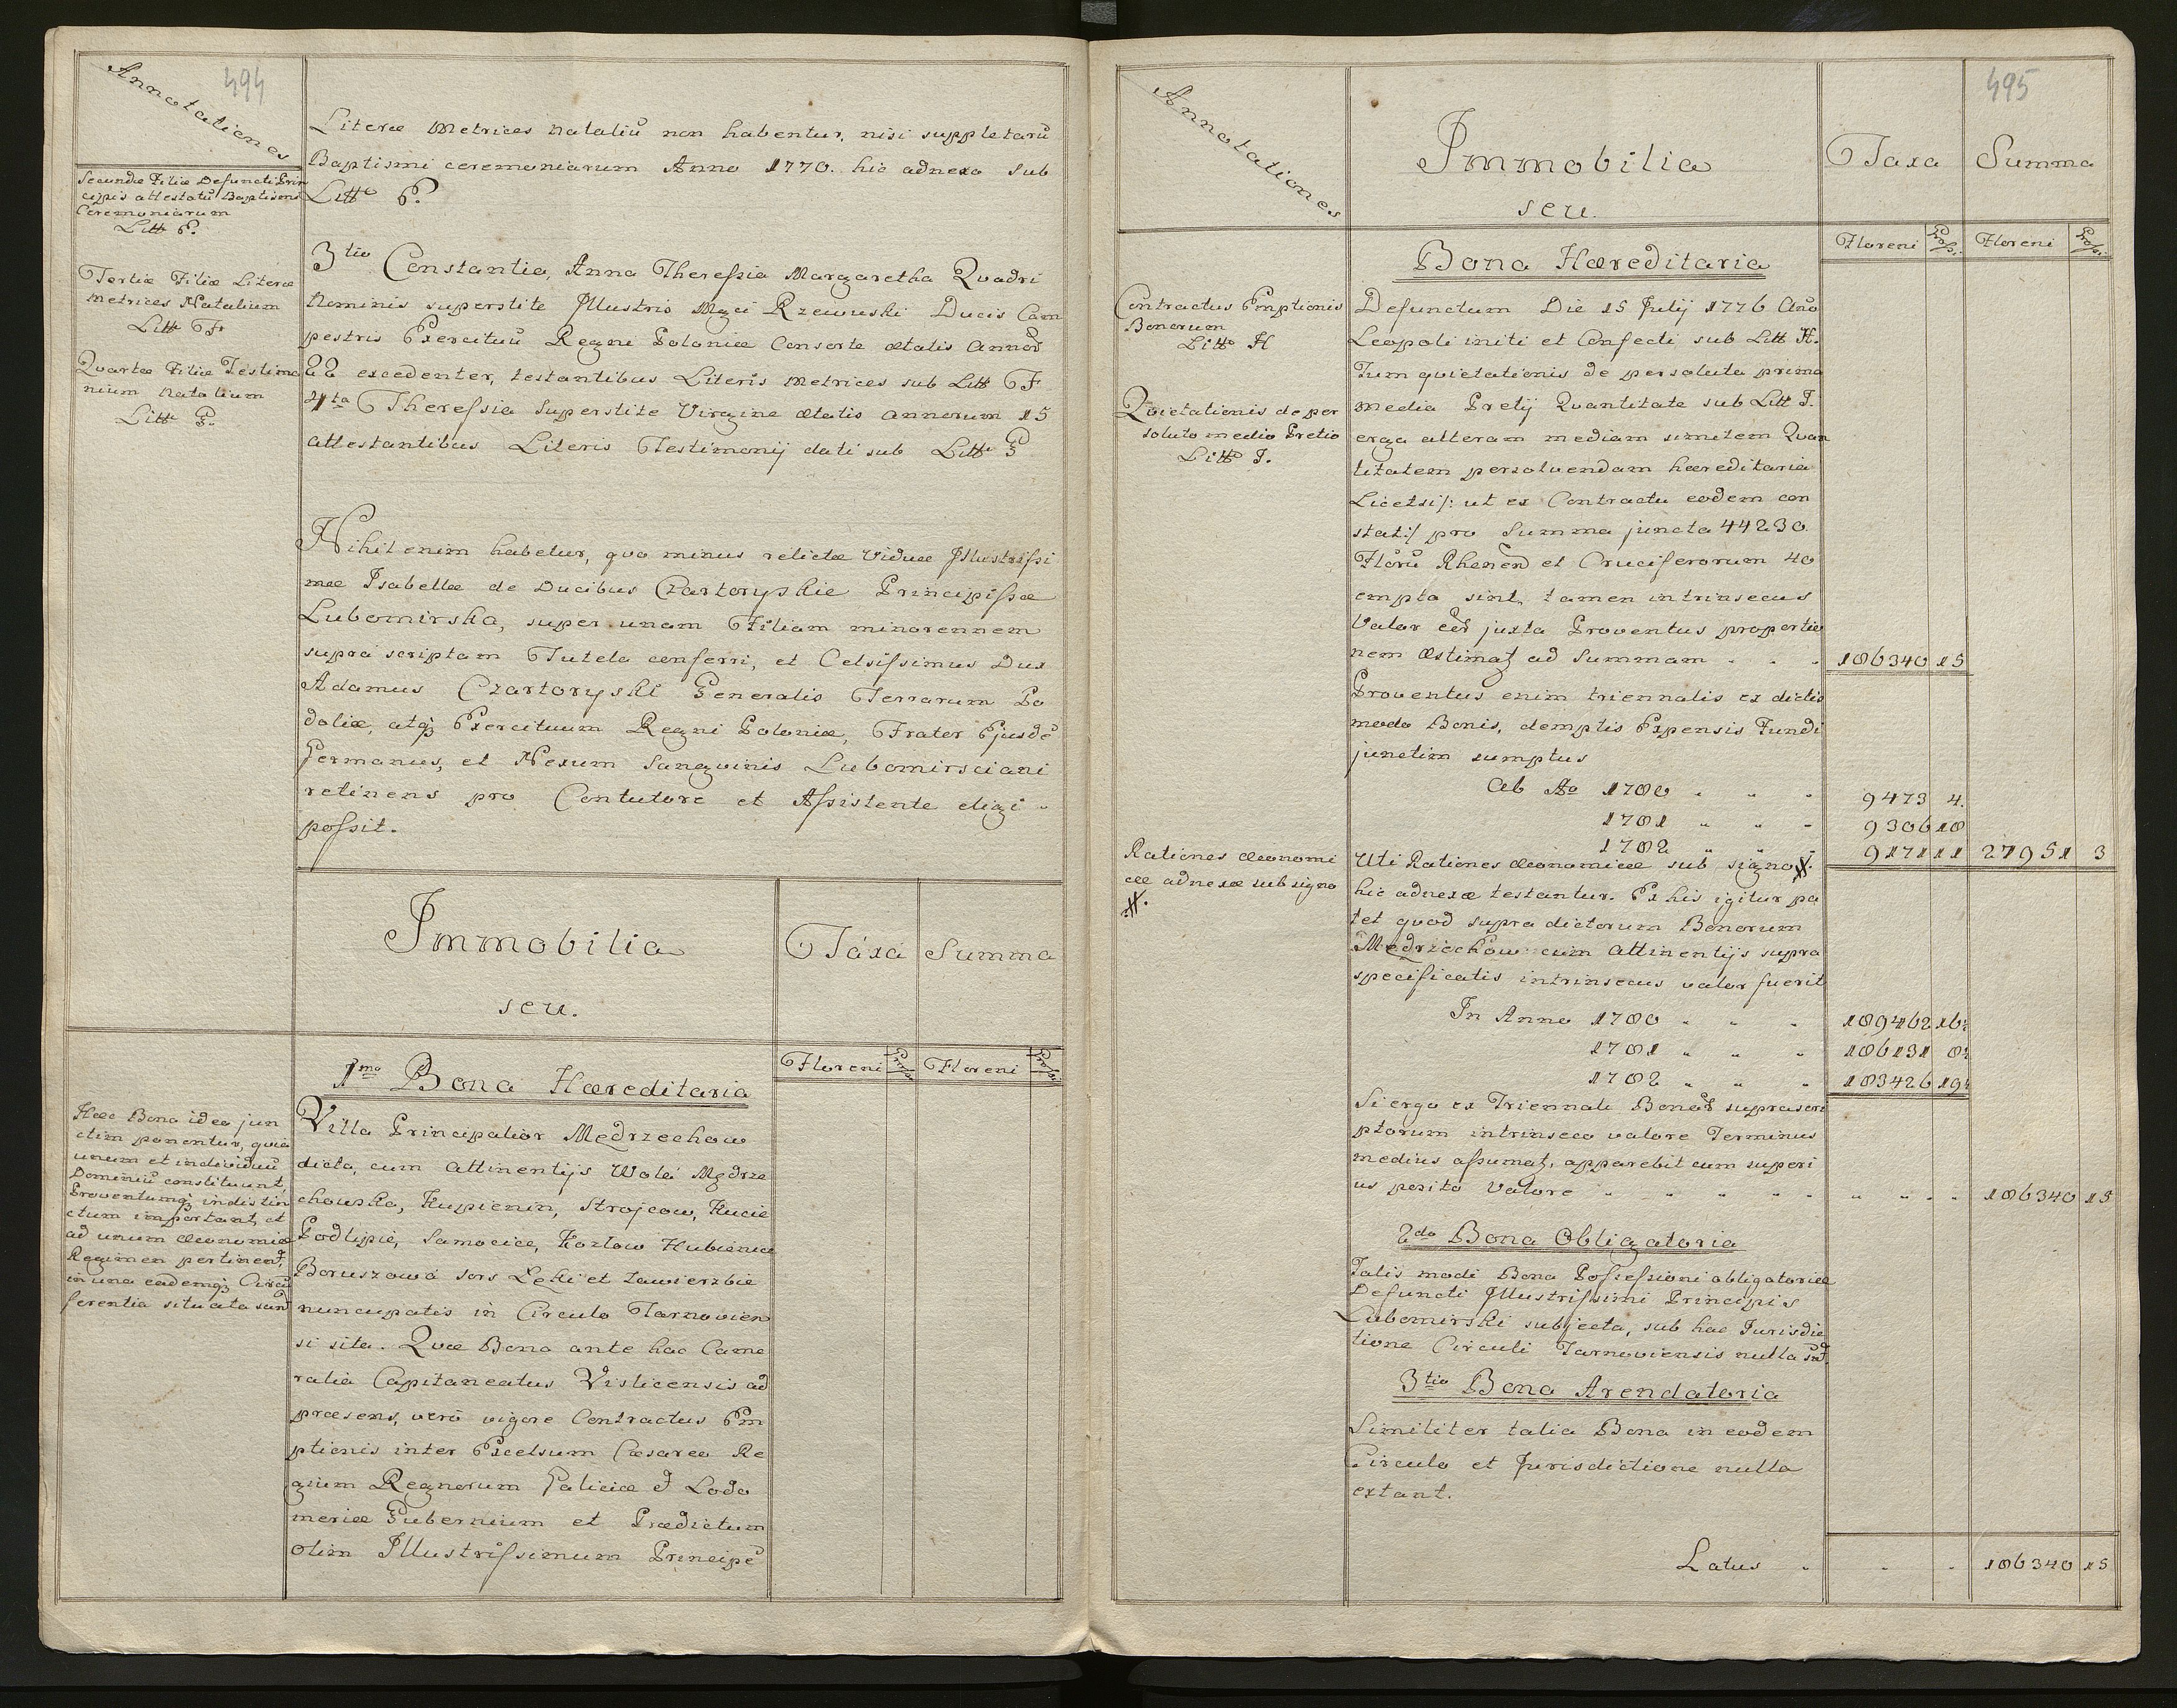 494
Annotationes
Literæ Metrices Nataliũ non habentur, nisi suppletarũ
Baptismi ceremoniarum Anno 1770. hic adnexo sub
Litt E.
Secundæ Filiæ Defuncti Prin
cipis attestatũ Baptismi
Ceremoniarum
Litt E.
3tio Constantia, Anna Theressia Margaretha Quadri
Nominis superstite Illustris Mgci Rzewuski Ducis Cam
pestris Exercituũ Regni Poloniæ Consorte ætatis Annor
22 excedenter, testantibus Literis Metrices sub Litt F
4ta Theressia Superstite Virgine ætatis annorum 15
attestantibus Literis Testimonij dati sub Litt G
Tertiæ Filiæ Literæ
Metrices Natalium
Litt F
Quartæ Filiæ Testimo
nium Natalium
Litt G.
Nihil enim habetur, quo minus relictæ Viduæ Illustrissi
mæ Isabellæ de Ducibus Czartoryskie Principissæ
Lubomirska, super unam Filiam minorennem
supra scriptam Tutela conferri, et Celsissimus Dux
Adamus Czartoryski Generalis Terrarum Po
doliæ, atq; Exercituum Regni Poloniæ, Frater Ejusdẽ
Germanus, et Nexum Sangvinis Lubomirsciani
retinens pro Contutore et Assistente eligi
possit.
Immobilia
seu.
Taxa Summa
Floreni Grossi Floreni Grossi
1mo Bona Hæreditaria
Villa Principalior Mędrzechow
dicta, cum attinentijs Wola Mędrze
chowska, Kupienin, Strojcow, Kucie
Podlipie, Samocice, Kozłow Hubienice
Boruszowa sors Łęki et Zawierzbie
nuncupatis in Circulo Tarnovien
si sita. Quæ Bona ante hac Came
ralia Capitaneatus Visticensis ad
præsens, verò vigore Contractus Em
ptionis inter Excelsum Cæsareo Re
gium Regnorum Galiciæ & Lodo
meriæ Gubernium et Prædictum
olim Illustrissimum Principẽ
Hæc Bona ideo jun
ctim ponentur, quia
unum et individuũ
Dominiũ constituunt,
Proventumq; indistin
ctum important, et
ad unum œconomiæ
Regimen pertinend,
in una eademq; Circũ
ferentia situata sunt
495
Annotationes
Immobilia
seu.
Taxa Summa
Floreni Grossi Floreni Grossi
Bona Hæreditaria
Contractus Emptionis
Bonorum
Litt H
Quietationis de per
soluto medio Pretio
Litt I.
Defunctum Die 15 Julij 1776 Año
Leopoli initi et Confecti sub Litt H.
Tum quietationis de persoluta prima
media Pretij Quantitate sub Litt I.
erga alteram mediam similem Quan
titatem persolvendam hæreditaria
Licetsi /: ut ex Contractu eodem con
stat :/ pro Summa juncta 44230
Florũ Rhenen et Cruciferorum 40
empta sint, tamen intrinsecus
Valor eor juxta Proventus proportio
nem Æstimat ad Summam . . . 186340 15
Proventus enim triennalis ex dictis
modo Bonis, demptis Expensis Fundi
junctim sumptus
Ab Ao 1780 " " " 9473 4.
1781 " " " 9306 18
1782 " " " 9171 11 27951 3
Rationes œconomi
cæ adnexæ sub signo
#.
Uti Rationes œconomicæ sub signo #.
hic adnexæ testantur. Ex his igitur pa
tet quod supra dictorum Bonorum
Mędrzechow cum attinentijs supra
specificatis intrinsecus valor fuerit
In Anno 1780 " " " 189462 16
1781 " " " 186131 8
1782 " " " 183426 19
Si ergo ex Triennali Bonor suprascri
ptorum intrinseco valore Terminus
medius assumat, apparebit cum superi
us posito Valore " " " " " " " " " 186340 15
2do Bona Obligatoria
Talis modi Bona Possessioni obligatoriæ
Defuncti Illustrissimi Principis
Lubomirski subjecta, sub hac Jurisdic
tione Circuli Tarnoviensis nulla sunt.
3tio Bona Arendatoria
Similiter talia Bona in eodem
Circulo et Jurisdictione nulla
extant.
Latus . . . 186340 15